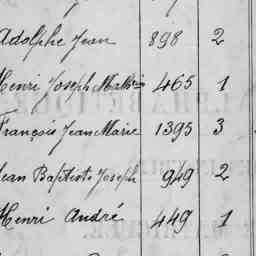 Adolphe Jean 898 2
Henri Joseph Mathis 465 1
François Jean Marie 1395 3
Jean Baptiste Joseph 949 2
Henri André 449 1